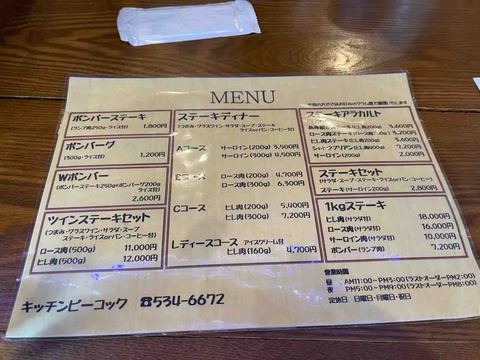 MENU
ボンバーステーキ
(ランプ肉250g・ライス付) 1,800円
ボンバーグ
(300g・ライス付) 1,200円
Wボンバー
(ボンバーステーキ250g+ボンバーグ200g
ライス付)
2,600円
ツインステーキセット
(つまみ・グラスワイン・サラダ・スープ
ステーキ・ライスorパン・コーヒー付)
ロース肉(500g) 11,000円
ヒレ肉(500g) 12,000円
ステーキディナー
(つまみ・グラスワイン・サラダ・スープ・ステーキ
ライスorパン・コーヒー付)
Aコース サーロイン(200g) 3,500円
サーロイン(300g) 4,500円
Bコース ロース肉(200g) 4,700円
ロース肉(300g) 6,300円
Cコース ヒレ肉(200g) 5,400円
ヒレ肉(300g) 7,200円
レディースコース アイスクリーム付
ヒレ肉(160g) 4,700円
ステーキアラカルト
3,600円
ロース肉ステーキ(ロース肉200g) 3,600円
ヒレ肉ステーキ(ヒレ肉200g) 4,200円
シャトーブリアン(ヒレ肉200g)
サーロイン(200g) 2,000円
ステーキセット
(サラダ・スープ・ステーキ・ライスorパン・コーヒー)
ステーキ(200g) 2,800円
1kgステーキ
ヒレ肉(サラダ付) 18,000円
ロース肉(サラダ付) 16,000円
サーロイン肉(サラダ付) 10,000円
ボンバー(ランプ肉) 7,200円
営業時間
昼 AM11:00〜PM3:00(ラストオーダーPM2:00)
夜 PM5:00〜PM9:00(ラストオーダーPM8:00)
定休日 日曜日・月曜日・祝日
キッチンピーコック ☎534-6672